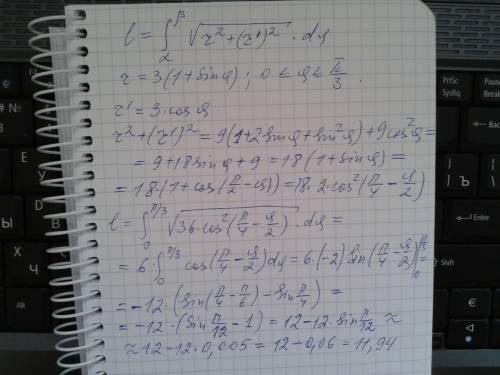 l = ∫_α^β √(r² + (r')²) · dφ
r = 3(1 + sin φ); 0 ≤ φ ≤ π/3.
r' = 3 · cos φ
r² + (r')² = 9(1 + 2 sin φ + sin² φ) + 9 cos² φ =
= 9 + 18 sin φ + 9 = 18(1 + sin φ) =
= 18 · (1 + cos(π/2 − φ)) = 18 · 2 · cos²(π/4 − φ/2)
l = ∫_0^{π/3} √(36 · cos²(π/4 − φ/2)) · dφ =
= 6 · ∫_0^{π/3} cos(π/4 − φ/2) dφ = 6 · (−2) sin(π/4 − φ/2) |_0^{π/3} =
= −12 · (sin(π/4 − π/6) − sin π/4) =
= −12 · (sin π/12 − 1) = 12 − 12 · sin π/12 ≈
≈ 12 − 12 · 0,005 = 12 − 0,06 = 11,94
PrtSc
SysRq
Backspace
Enter
Shift
Ъ
€
Ы